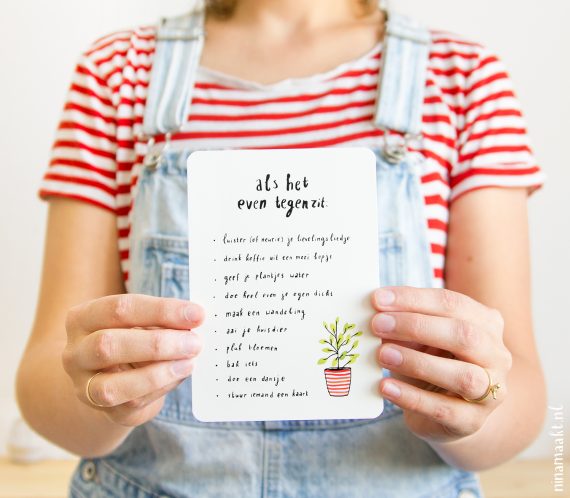 als het
even tegenzit.
• luister (of neurie) je lievelingsliedje
• drink koffie uit een mooi kopje
• geef je plantjes water
• doe heel even je ogen dicht
• maak een wandeling
• aai je huisdier
• pluk bloemen
• bak iets
• doe een dansje
• stuur iemand een kaart
ninamaakt.nl